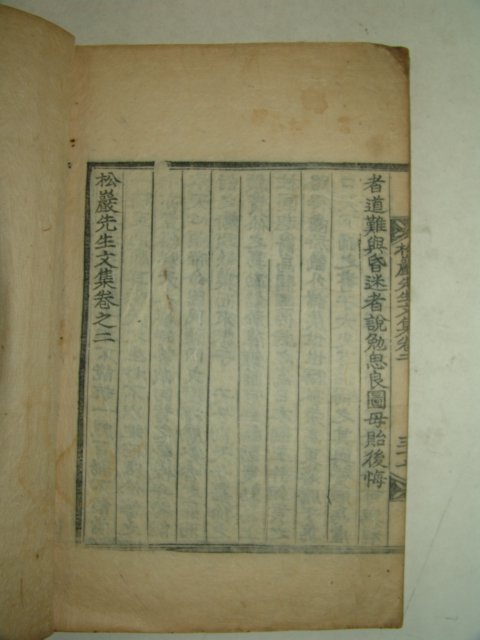 松巖先生文集卷二
者道難與昏迷者說勉思良圖毋貽後悔
松巖先生文集卷之二